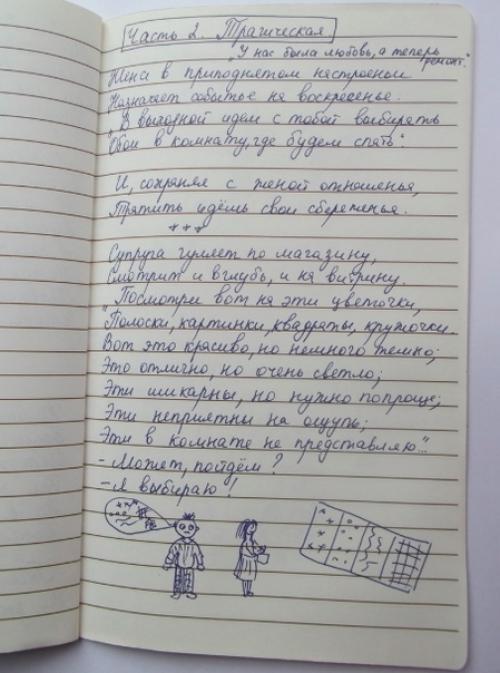 Часть 2. Трагическая
"У нас была любовь, а теперь
ремонт".
Жена в приподнятом настроеньи
Назначает событье на воскресенье.
"В выходной идем с тобой выбирать
Обои в комнату, где будем спать".
И, сохраняя с женой отношенья,
Тратить идёшь свои сбереженья.
***
Супруга гуляет по магазину,
Смотрит и вглубь, и на витрину.
"Посмотри вот на эти цветочки,
Полоски, картинки, квадраты, кружочки.
Вот это красиво, но немного темно;
Это отлично, но очень светло;
Эти шикарны, но нужно попроще;
Эти неприятны на ощупь;
Эти в комнате не представляю"...
- Может, пойдём?
- Я выбираю!